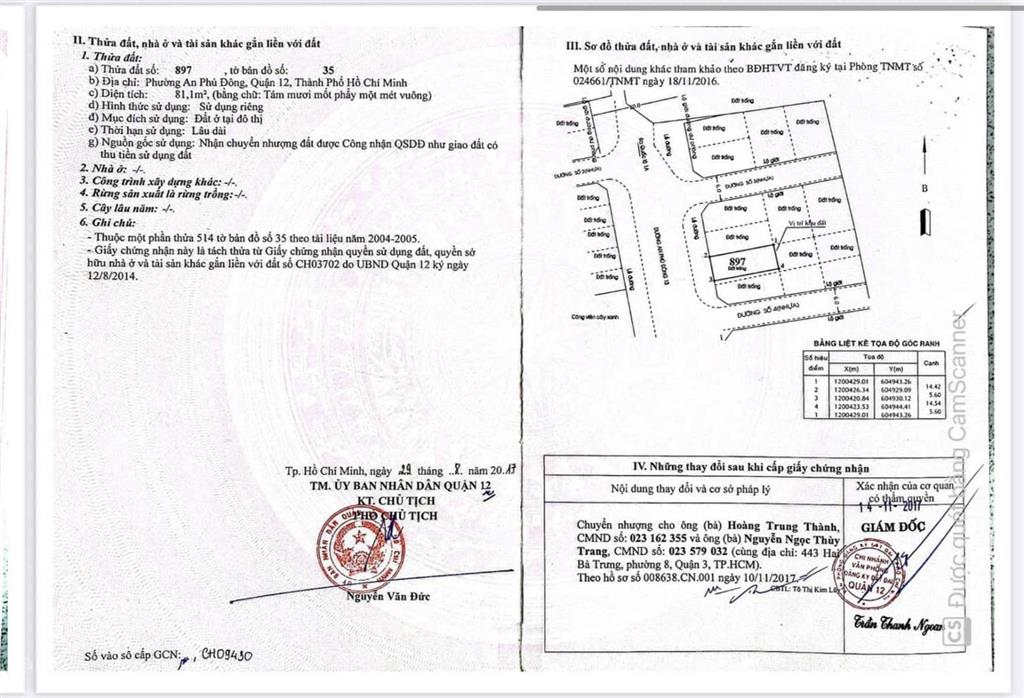 II. Thửa đất, nhà ở và tài sản khác gắn liền với đất
1. Thửa đất:
a) Thửa đất số: 897 , tờ bản đồ số: 35
b) Địa chỉ: Phường An Phú Đông, Quận 12, Thành Phố Hồ Chí Minh
c) Diện tích: 81,1m², (bằng chữ: Tám mươi mốt phẩy một mét vuông)
d) Hình thức sử dụng: Sử dụng riêng
đ) Mục đích sử dụng: Đất ở tại đô thị
e) Thời hạn sử dụng: Lâu dài
g) Nguồn gốc sử dụng: Nhận chuyển nhượng đất được Công nhận QSDĐ như giao đất có
thu tiền sử dụng đất
2. Nhà ở: -/-.
3. Công trình xây dựng khác: -/-.
4. Rừng sản xuất là rừng trồng:-/-.
5. Cây lâu năm: -/-.
6. Ghi chú:
- Thuộc một phần thửa 514 tờ bản đồ số 35 theo tài liệu năm 2004-2005.
- Giấy chứng nhận này là tách thửa từ Giấy chứng nhận quyền sử dụng đất, quyền sở
hữu nhà ở và tài sản khác gắn liền với đất số CH03702 do UBND Quận 12 ký ngày
12/8/2014.
Tp. Hồ Chí Minh, ngày 29 tháng 8. năm 2017
TM. ỦY BAN NHÂN DÂN QUẬN 12
KT. CHỦ TỊCH
PHÓ CHỦ TỊCH
Nguyễn Văn Đức
Số vào sổ cấp GCN: CH09430
III. Sơ đồ thửa đất, nhà ở và tài sản khác gắn liền với đất
Một số nội dung khác tham khảo theo BĐHTVT đăng ký tại Phòng TNMT số
024661/TNMT ngày 18/11/2016.
Đất trống
Đất trống
Đất trống
Đất trống
Đất trống
Đất trống
Lộ giới
ĐƯỜNG SỐ 2(NHỰA)
ĐƯỜNG SỐ 3(NHỰA)
6.0
B
Đất trống
Đất trống
Đất trống
Đất trống
Vị trí khu đất
Đất trống
Đất trống
Đất trống
897
Đất trống
Đất trống
Đất trống
Lề đường
ĐƯỜNG NHỰA RỘNG 13
Lộ giới
6.0
ĐƯỜNG SỐ 4(NHỰA)
Lộ giới
Công viên cây xanh
BẢNG LIỆT KÊ TỌA ĐỘ GÓC RANH
Số hiệu điểm Tọa độ Cạnh
X(m) Y(m)
1 1200429.01 604943.26
14.42
2 1200426.34 604929.09
5.60
3 1200420.84 604930.12
14.54
4 1200423.53 604944.41
5.60
1 1200429.01 604943.26
IV. Những thay đổi sau khi cấp giấy chứng nhận
Nội dung thay đổi và cơ sở pháp lý
Xác nhận của cơ quan
có thẩm quyền
14-11-2017
GIÁM ĐỐC
Chuyển nhượng cho ông (bà) Hoàng Trung Thành,
CMND số: 023 162 355 và ông (bà) Nguyễn Ngọc Thùy
Trang, CMND số: 023 579 032 (cùng địa chỉ: 443 Hai
Bà Trưng, phường 8, Quận 3, TP.HCM).
Theo hồ sơ số 008638.CN.001 ngày 10/11/2017
CBTL: Tô Thị Kim
CHI NHÁNH
VĂN PHÒNG
ĐĂNG KÝ ĐẤT ĐAI
QUẬN 12
Trần Thanh Ngoan
CS Được quét bằng CamScanner